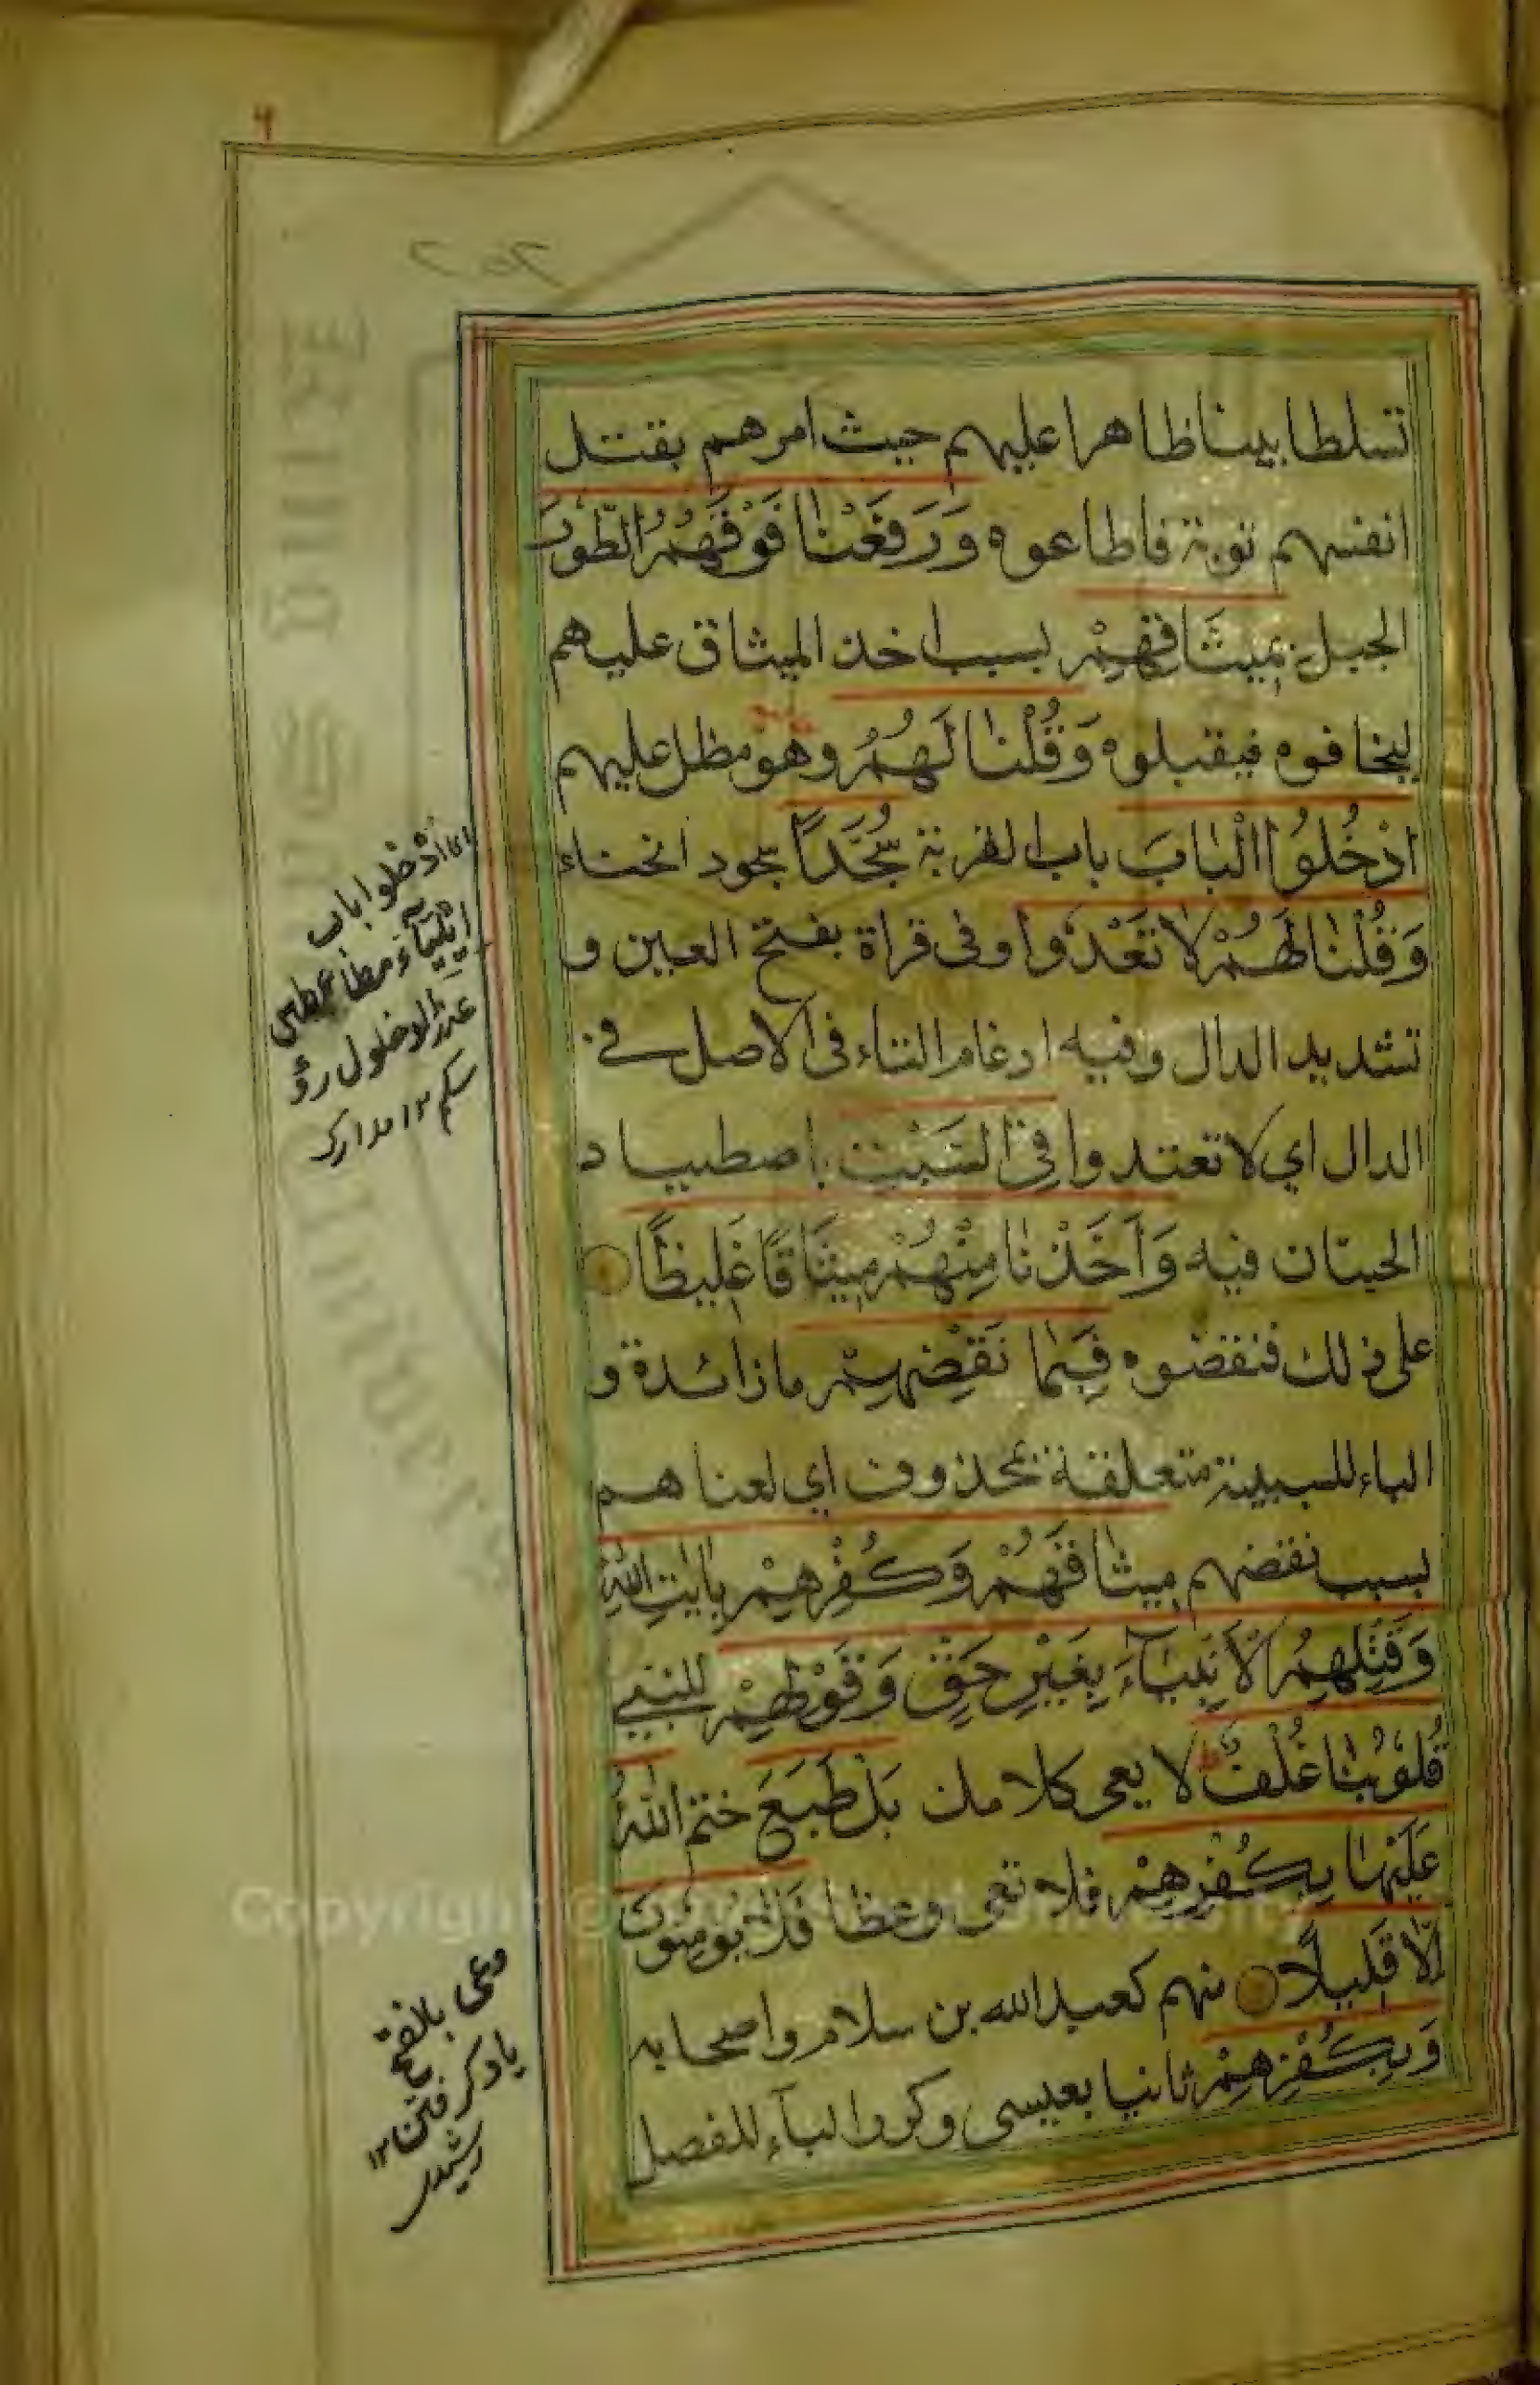 تسلطا بينا ظاهرا عليهم حيث امرهم بقتل
انفسهم توبة فاطاعوه وَرَفَعْنَا فَوْقَهُمُ الطُّورَ
الجبل بِمِيثَاقِهِمْ بسبب اخذ الميثاق عليهم
ليخافوه فيقبلوه وَقُلْنَا لَهُمْ وهو مظل عليهم
ادْخُلُوا الْبَابَ باب القرية سُجَّدًا سجود انحناء
وَقُلْنَا لَهُمْ لَا تَعْدُوا وفى قراة بفتح العين و
تشديد الدال وفيه ادغام التاء فى الاصل فے
الدال اي لا تعتدوا فِى السَّبْتِ باصطياد
الحيتان فيه وَاَخَذْنَا مِنْهُمْ مِيثَاقًا غَلِيظًا
على ذلك فنقضوه فَبِمَا نَقْضِهِمْ ما زائدة و
الباء للسببية متعلقة بمحذوف اي لعناهم
بسبب نقضهم مِيثَاقَهُمْ وَكُفْرِهِمْ بِاٰيٰتِ اللّٰهِ
وَقَتْلِهِمُ الْاَنْبِيَآءَ بِغَيْرِ حَقٍّ وَقَوْلِهِمْ للنبے
قُلُوبُنَا غُلْفٌ لا يعى كلامك بَلْ طَبَعَ ختم اللّٰهُ
عَلَيْهَا بِكُفْرِهِمْ فلا تعى وعظا فَلَا يُؤْمِنُونَ
اِلَّا قَلِيلًا منهم كعبد الله بن سلام واصحابه
وَبِكُفْرِهِمْ ثانيا بعيسى وكرر الباء للفصل
ادخلوا باب
ايلياء
سكم ١٢ مدارك
وعى بالفتح
ياد كرفتن ١٢
رشيدى